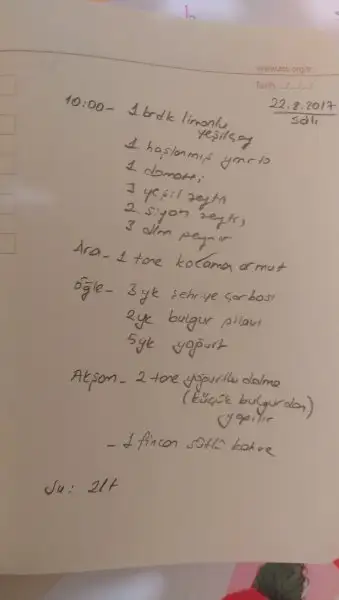 22.8.2017
Salı
10:00- 1 brdk limonlu
yeşilçay
1 haşlanmış ymrta
1 domates
3 yeşil zeytn
2 siyah zeytn
3 dlm peynir
Ara- 1 tane kocaman armut
Öğle- 3 yk şehriye çorbası
2 yk bulgur pilavı
5 yk yoğurt
Akşam- 2 tane yoğurtlu dolma
(küçük bulgurdan)
yapılır
- 1 fincan sütlü kahve
Su: 2lt